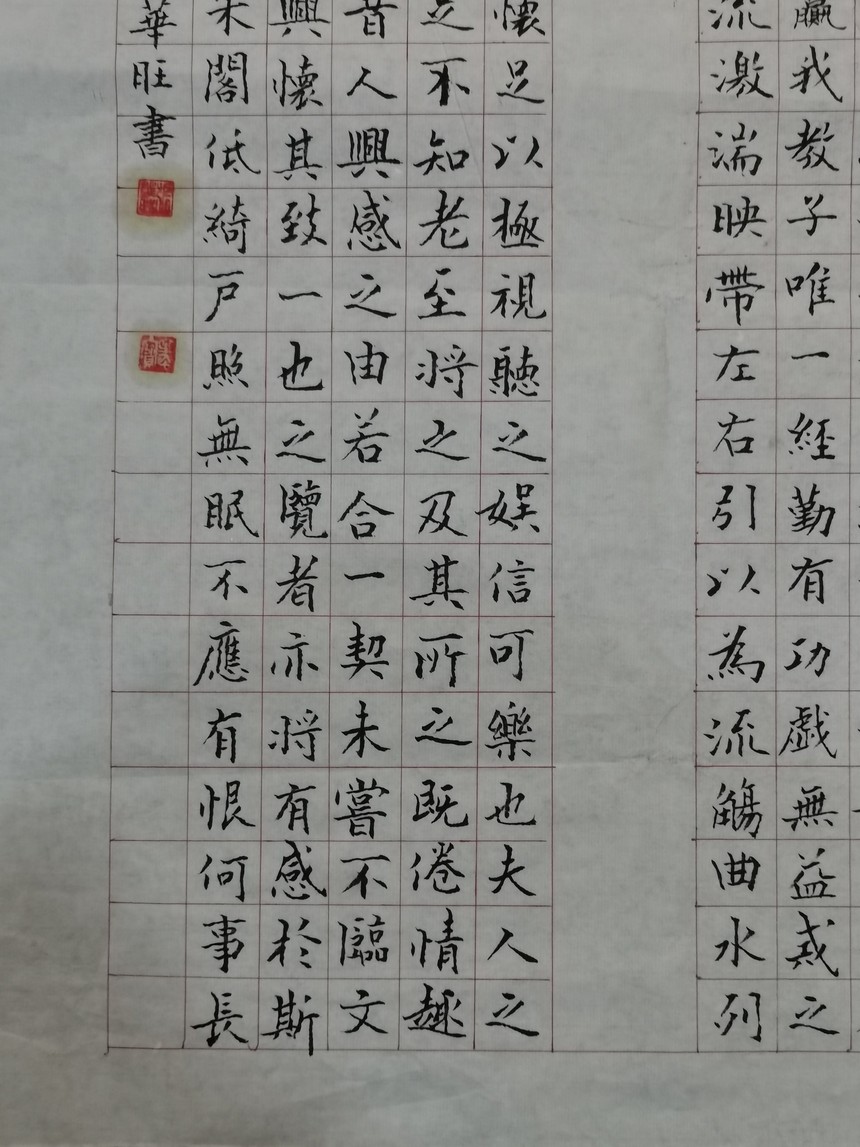 贏我教子唯一經勤有功戲無益戒之
流激湍映帶左右引以為流觴曲水列
懷足以極視聽之娛信可樂也夫人之
足不知老至將之及其所之既倦情趣
昔人興感之由若合一契未嘗不臨文
興懷其致一也之覽者亦將有感於斯
朱閣低綺戶照無眠不應有恨何事長
華旺書